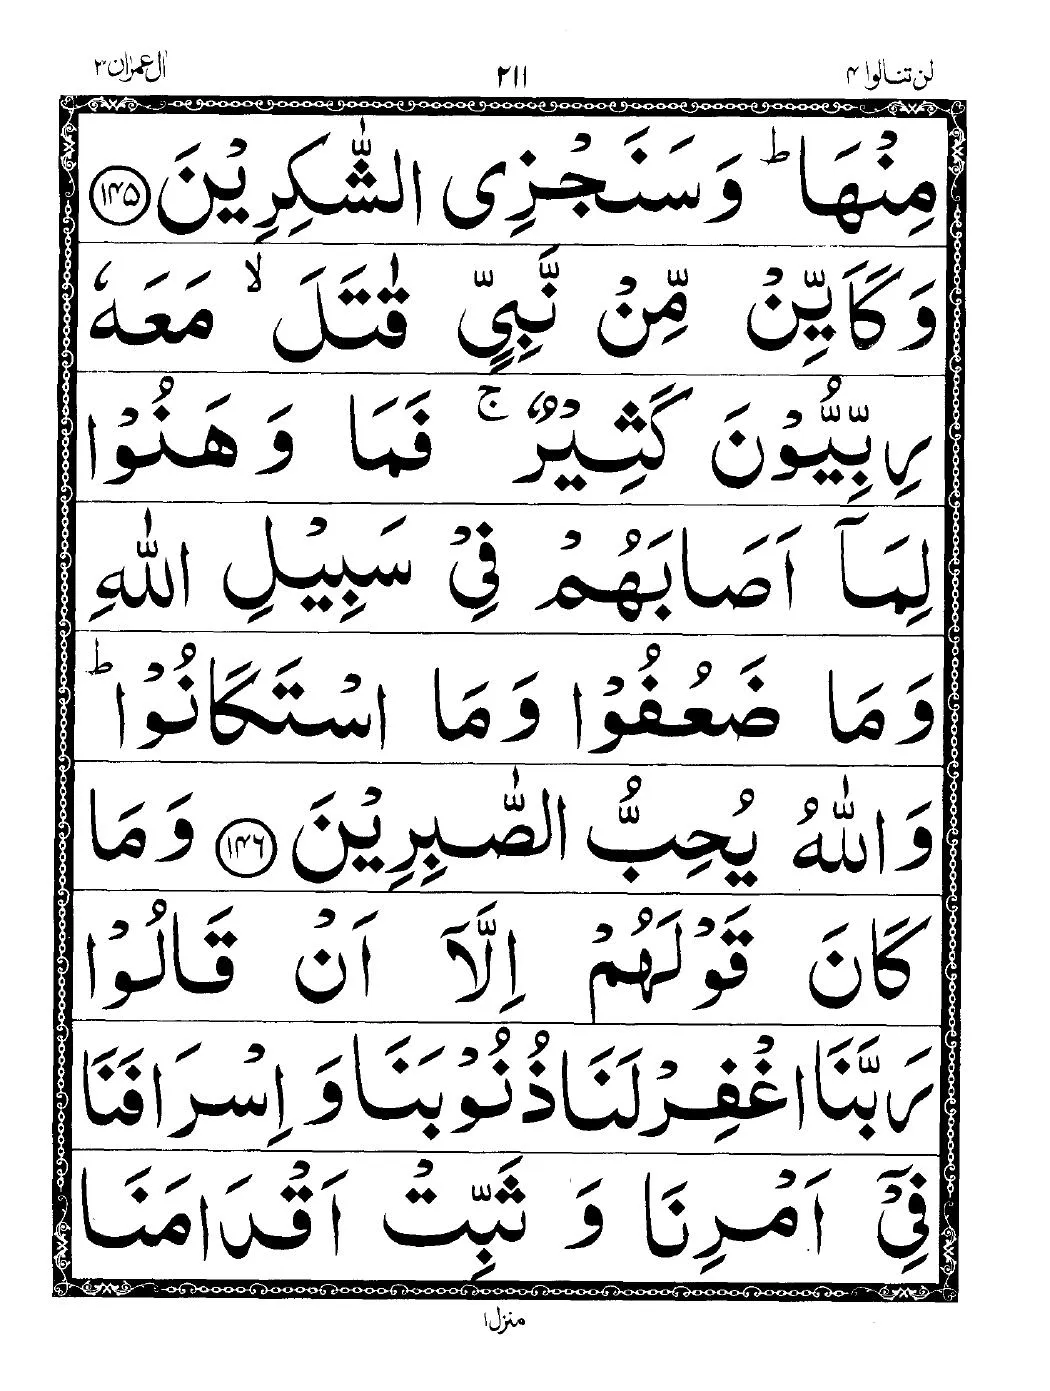 لن تنالوا ۴ ۲۱۱ اٰل عمرٰن ۳
مِنْهَا ؕ وَ سَنَجْزِی الشّٰكِرِیْنَ ﴿۱۴۵﴾
وَ كَاَیِّنْ مِّنْ نَّبِیٍّ قٰتَلَ ۙ مَعَهٗ
رِبِّیُّوْنَ كَثِیْرٌ ۚ فَمَا وَ هَنُوْا
لِمَاۤ اَصَابَهُمْ فِیْ سَبِیْلِ اللّٰهِ
وَ مَا ضَعُفُوْا وَ مَا اسْتَكَانُوْا ؕ
وَ اللّٰهُ یُحِبُّ الصّٰبِرِیْنَ ﴿۱۴۶﴾ وَ مَا
كَانَ قَوْلَهُمْ اِلَّاۤ اَنْ قَالُوْا
رَبَّنَا اغْفِرْ لَنَا ذُنُوْبَنَا وَ اِسْرَافَنَا
فِیْۤ اَمْرِنَا وَ ثَبِّتْ اَقْدَامَنَا
منزل ۱